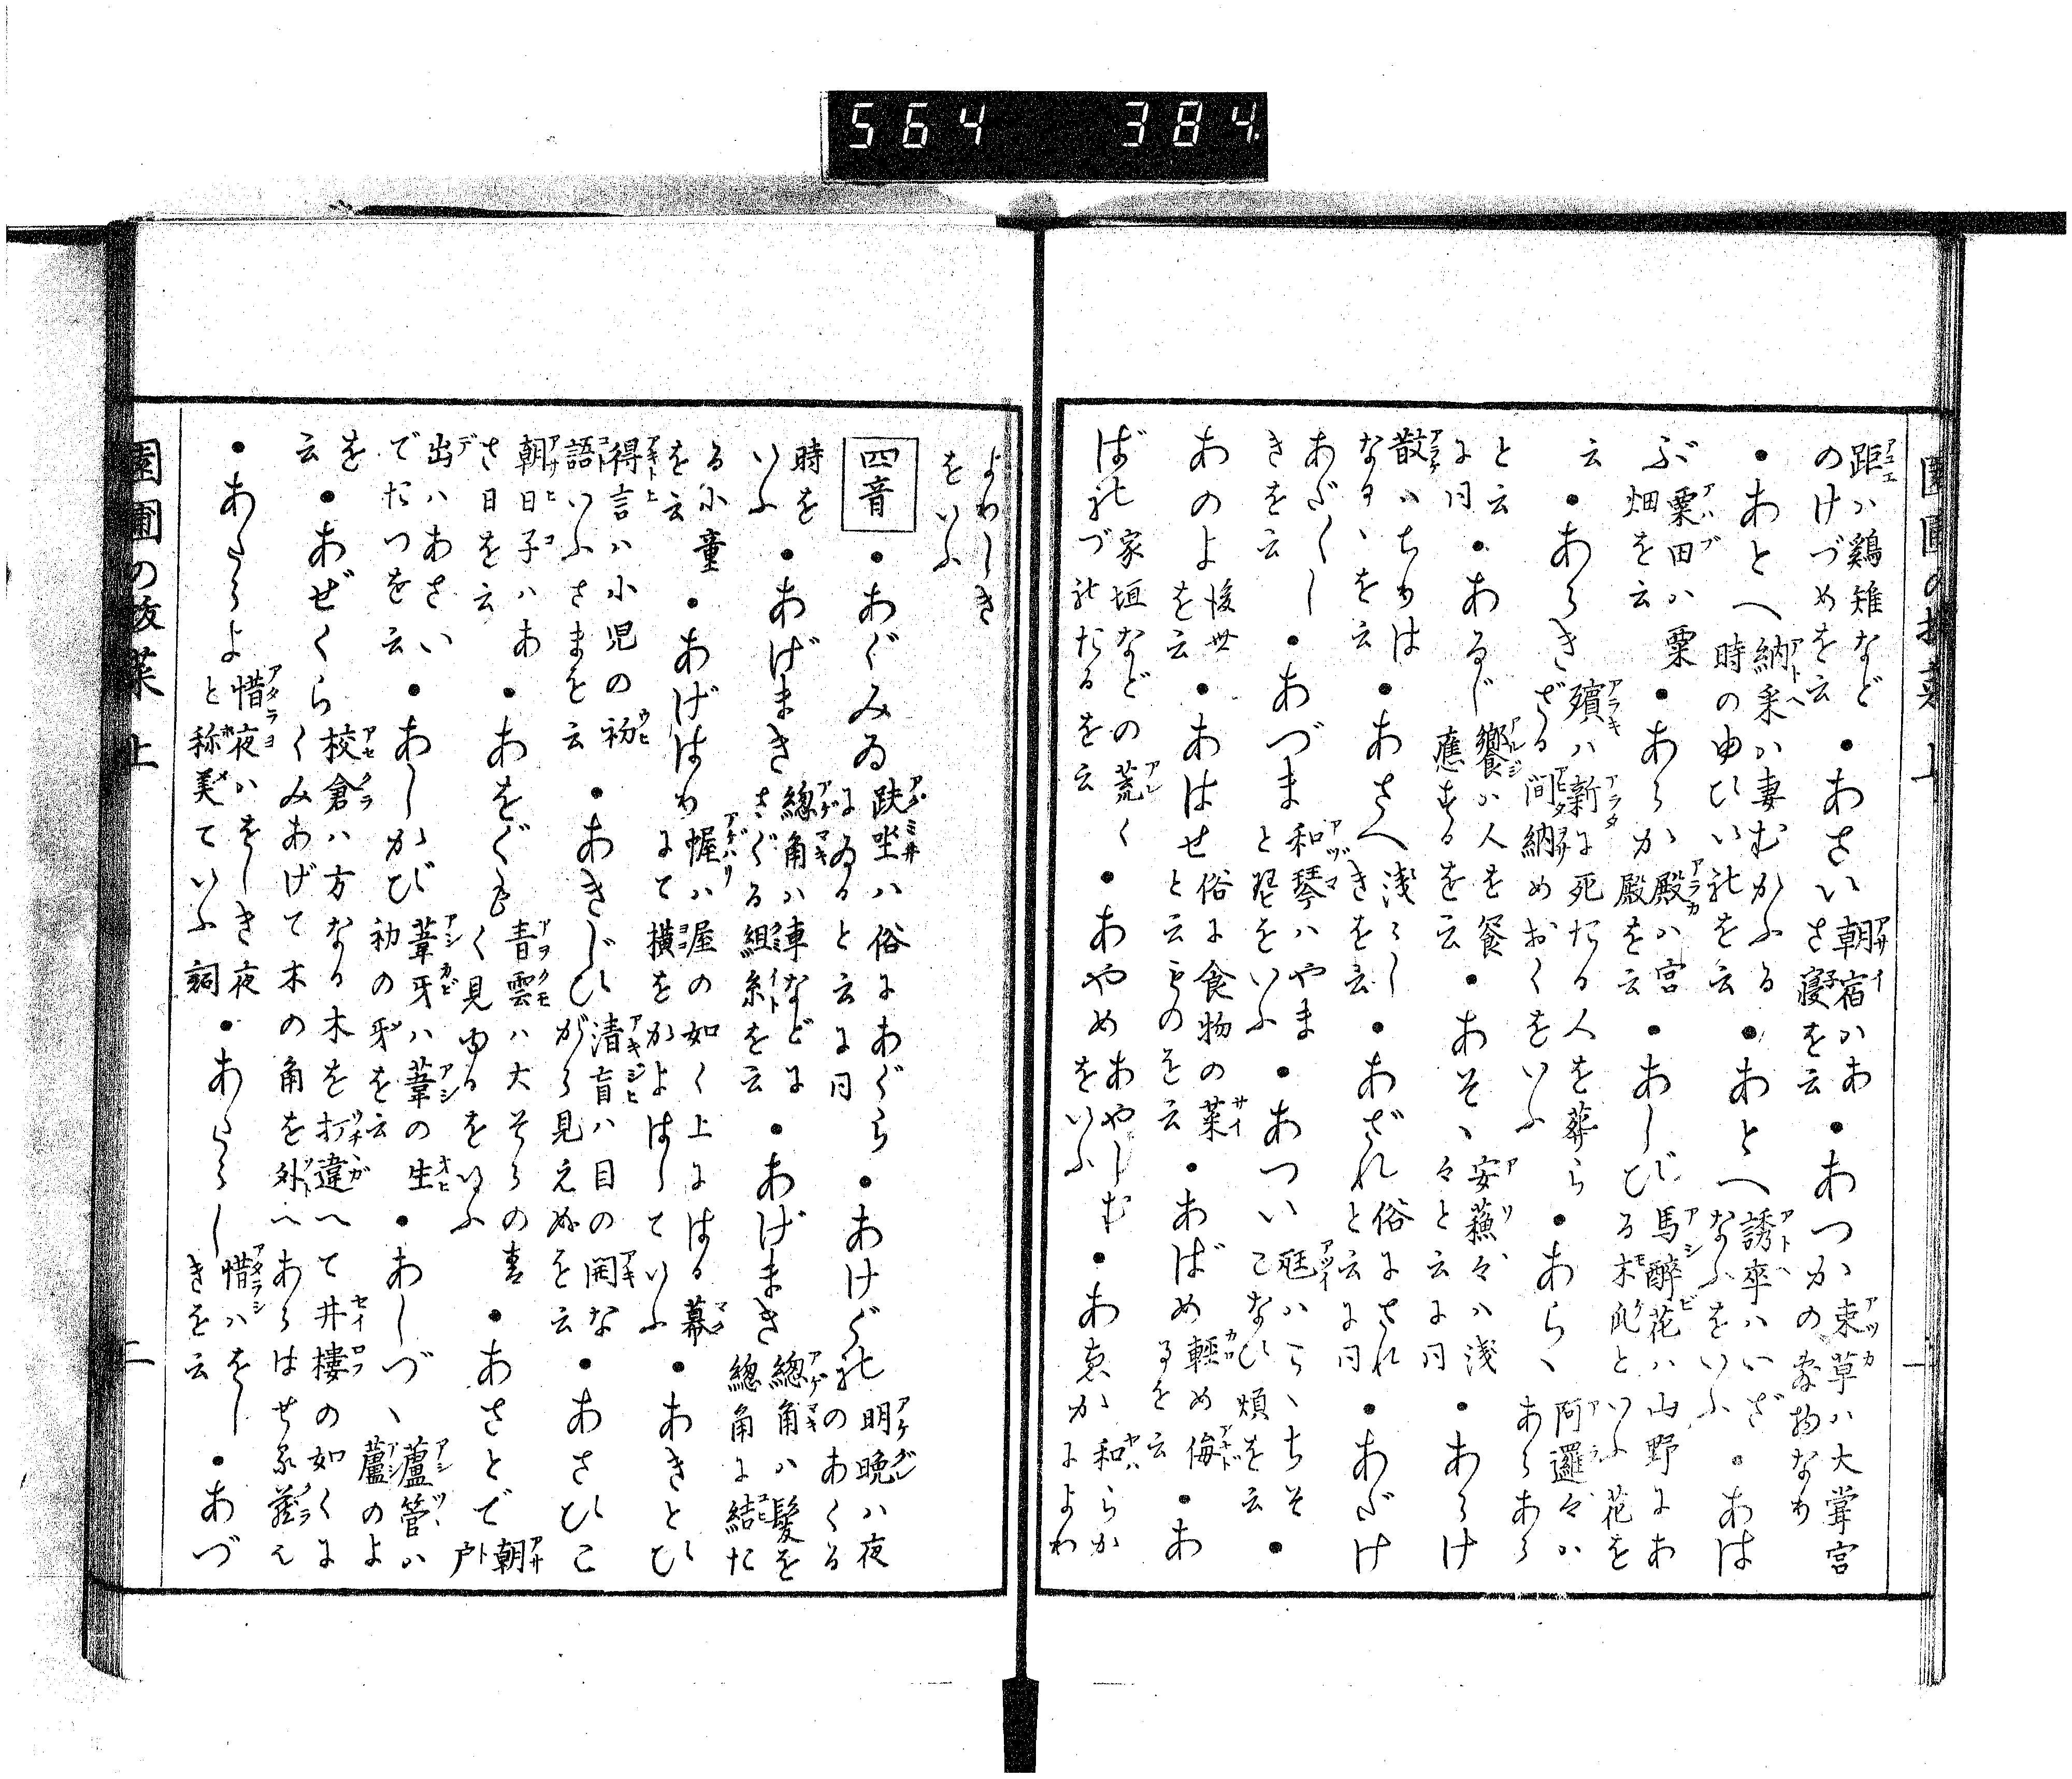 564 384
園圃の抜菜 上 一
距ハ鷄雉など
のけづめを云
・あさい
朝宿ハあ
さ寝を云
・あつか
束草ハ大嘗宮
の飾物なり
・あとへ
納采ハ妻むかふる
時の申ひいれを云
・あとへ
誘率ハいざ
なふをいふ
・あは
ぶ
粟田ハ粟
畑を云
・あらか
殿ハ宮
殿を云
・あしび
馬酔花ハ山野にあ
る木此といふ花を
云
・あらき
殯ハ新に死たる人を葬ら
ざる間納めおくをいふ
・あらゝ
阿邏々ハ
あらあら
と云
に同
・あるじ
饗ハ人を餐
應するを云
・あそゝ
安蘓々ハ浅
々と云に同
・あらけ
散ハちりは
なるゝを云
・あさへ
浅々し
きを云
・あざれ
俗にされ
と云に同
・あだけ
あだくし
きを云
・あづま
和琴ハやま
と琴をいふ
・あつい
・
こなひ煩を云
あのよ
後世
を云
・あはせ
俗に食物の菜
と云ものを云
・あばめ
軽め侮
るを云
・あ
ばれ
家垣などの荒く
づれたるを云
・あやめ
あやしむ
をいふ
・あゑか
和らか
によわ
よわしき
をいふ
四音
・あぐみゐ
趺坐ハ俗にあぐら
にゐると云に同
・あけぐれ
明晩ハ夜
のあくる
時を
いふ
・あげまき
總角ハ車などに
さぐる組糸を云
・あげまき
總角ハ髪を
總角に結た
る小童
を云
・あげはり
幄ハ屋の如く上にはる幕
にて横をかよはしていふ
・あきとひ
得言ハ小児の初
語いふさまを云
・あきじひ
清盲ハ目の開な
がら見えぬを云
・あさひこ
朝日子ハあ
さ日を云
・あをぐも
青雲ハ大そらの青
く見ゆるをいふ
・あさとで
朝戸
出ハあさい
でたつを云
・あしかび
葦牙ハ葦の生
初の牙を云
・あしづゝ
蘆管ハ
蘆のよ
を
云
・あぜくら
校倉ハ方なる木を打違へて井樓の如くに
くみあげて木の角を外へあらはせる藏
・あたらよ
惜夜ハをしき夜
と称美ていふ詞
・あたらし
惜ハをし
きを云
・あづ
園圃の抜菜 上 二